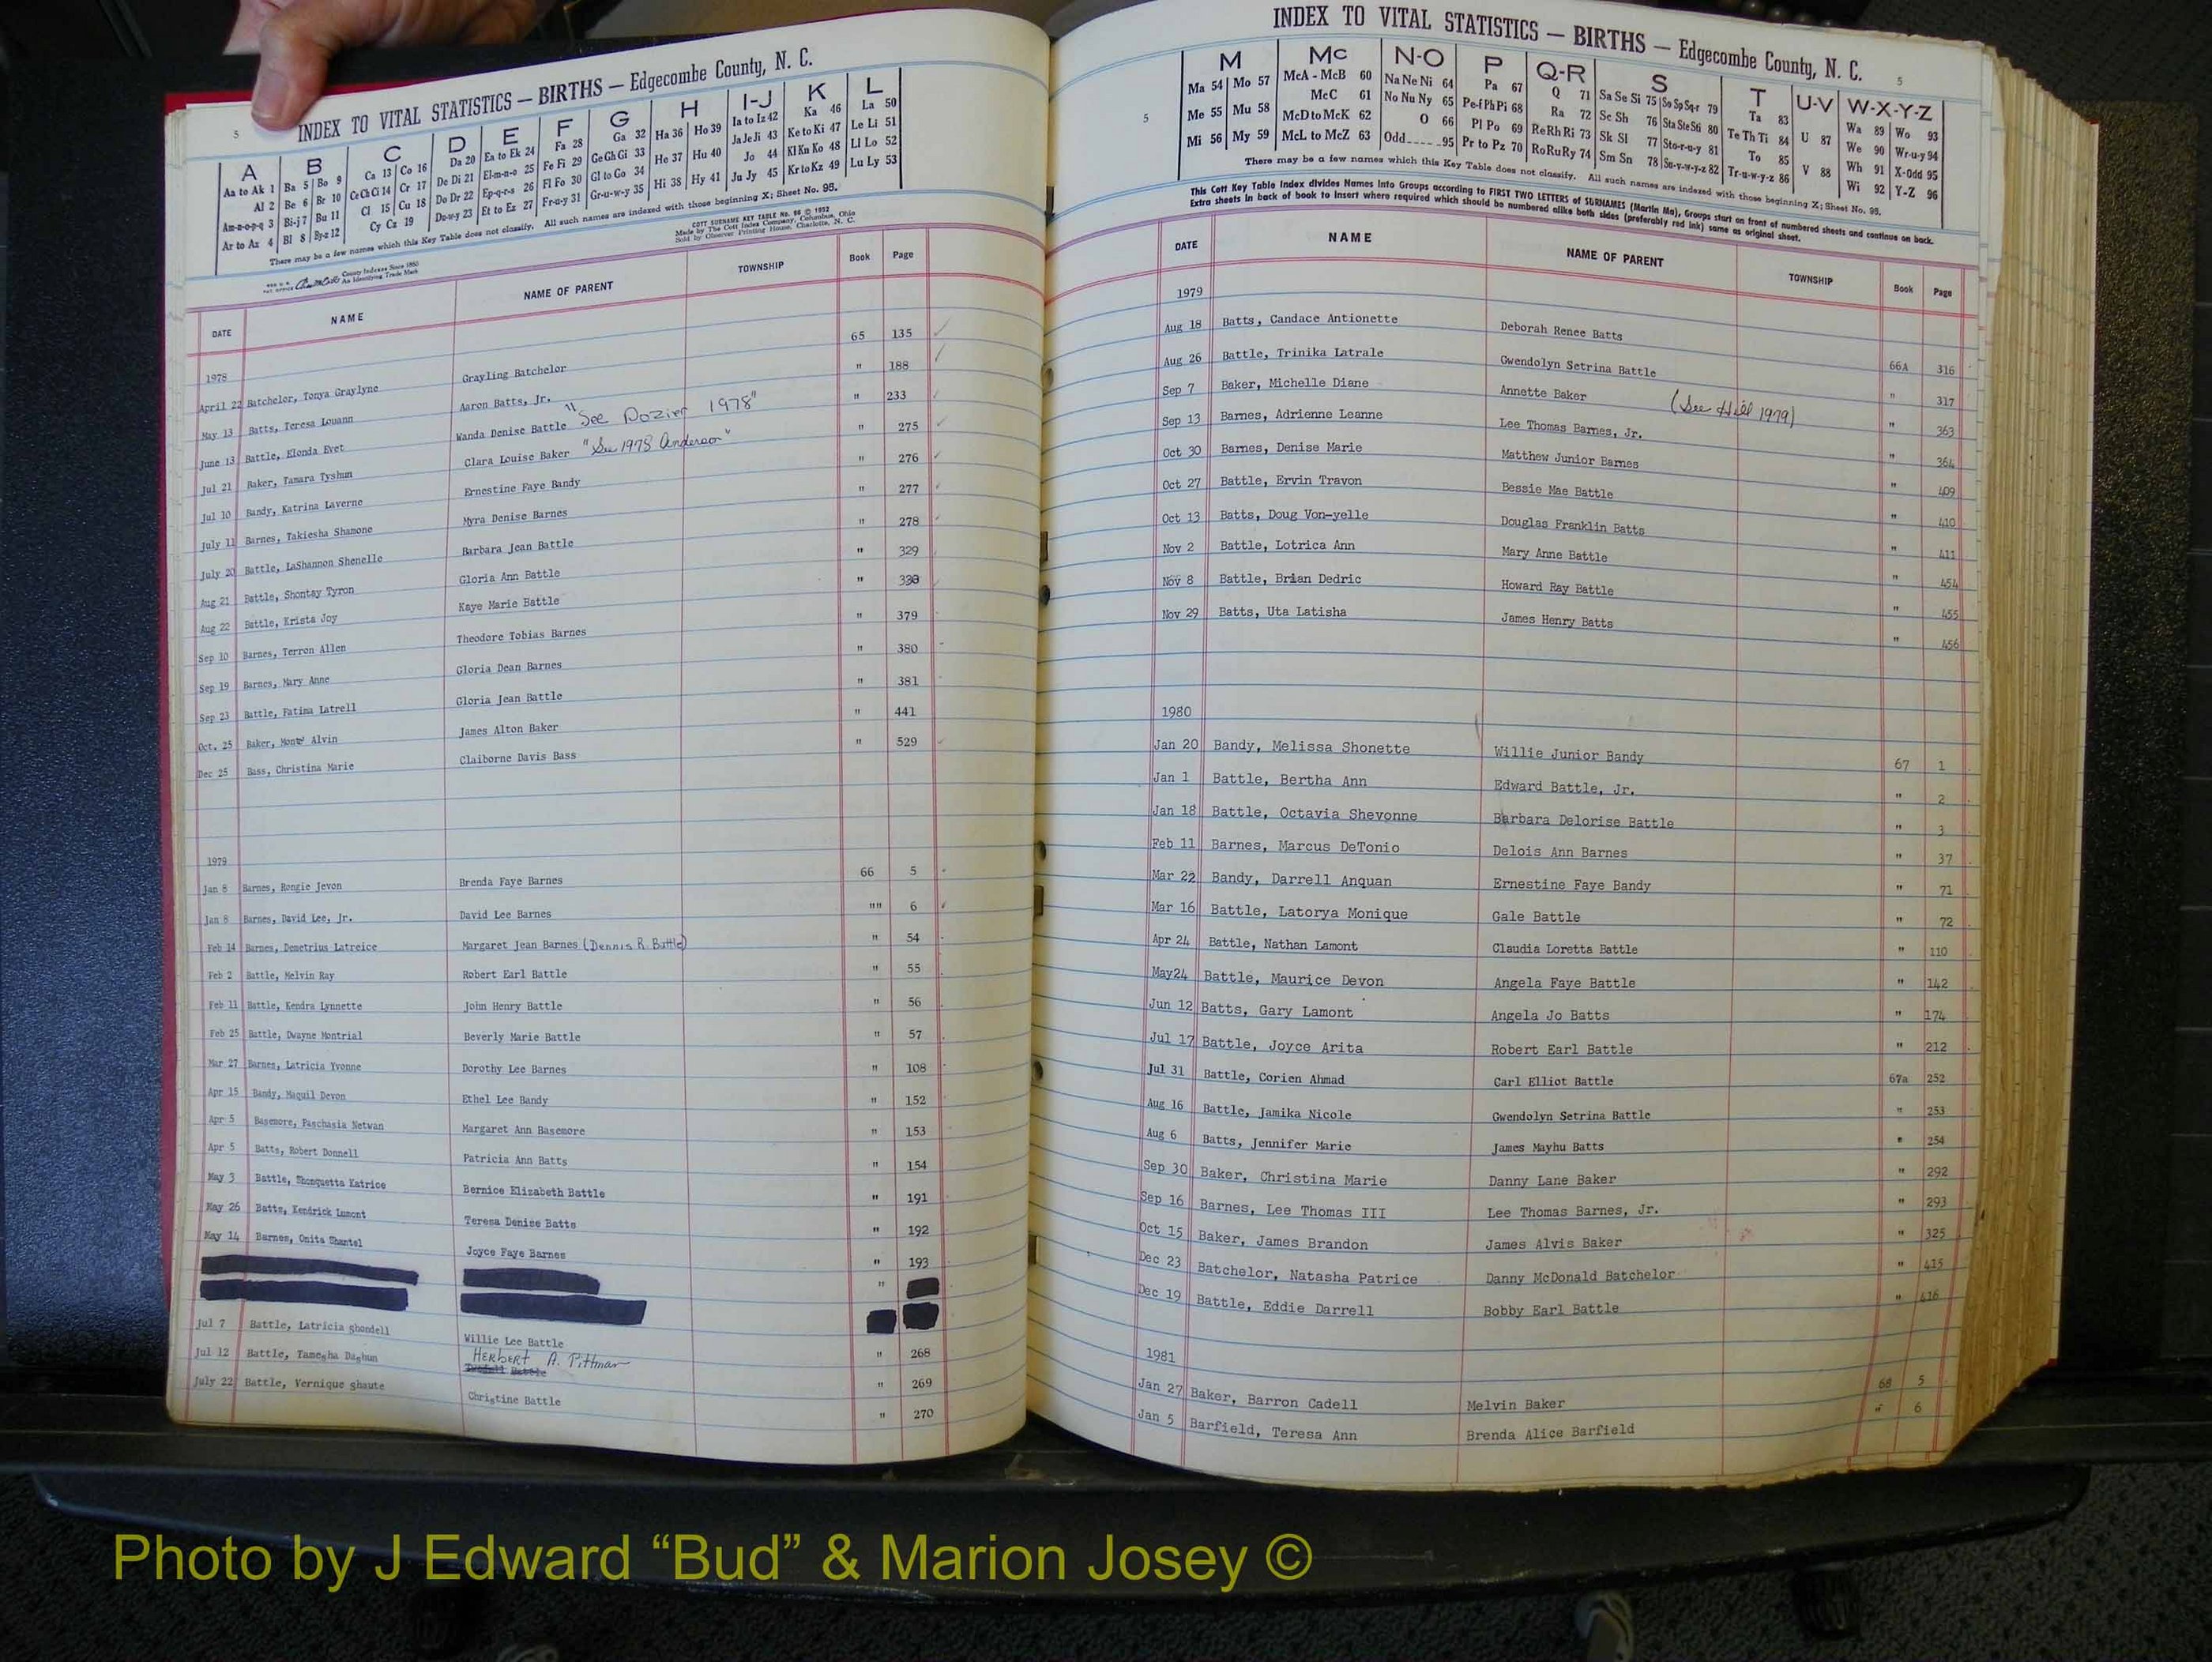 5
INDEX TO VITAL STATISTICS — BIRTHS — Edgecombe County, N. C.
A B C D E F G H I-J K L
Aa to Ak 1 Ba 5 Bo 9 Ca 13 Co 16 Da 20 Ea to Ek 24 Fa 28 Ga 32 Ha 36 Ho 39 Ia to Iz 42 Ka 46 La 50
Al 2 Be 6 Br 10 Ce Ch Ci 14 Cr 17 De Di 21 El-m-n-o 25 Fe Fi 29 Ge Gh Gi 33 He 37 Hu 40 Ja Je Ji 43 Ke to Ki 47 Le Li 51
Am-n-o-p-q 3 Bi-j 7 Bu 11 Cl 15 Cu 18 Do Dr 22 Ep-q-r-s 26 Fl Fo 30 Gl to Go 34 Hi 38 Hy 41 Jo 44 Kl Kn Ko 48 Ll Lo 52
Ar to Az 4 Bl 8 By-z 12 Cy Cz 19 Du-w-y 23 Et to Ez 27 Fr-u-y 31 Gr-u-w-y 35 Ju Jy 45 Kr to Kz 49 Lu Ly 53
There may be a few names which this Key Table does not classify. All such names are indexed with those beginning X; Sheet No. 95.
County Indexes Since 1880
An Identifying Trade Mark
COTT SURNAME KEY TABLE No. 96 © 1952
Made by The Cott Index Company, Columbus, Ohio
Sold by Observer Printing House, Charlotte, N. C.
DATE NAME NAME OF PARENT TOWNSHIP Book Page
1978
April 22 Batchelor, Tonya Graylyne Grayling Batchelor 65 135
May 13 Batts, Teresa Louann Aaron Batts, Jr. " 188
June 13 Battle, Elonda Evet Wanda Denise Battle "See Dozier 1978" " 233
Jul 21 Baker, Tamara Tyshun Clara Louise Baker "See 1978 Anderson" " 275
Jul 10 Bandy, Katrina Laverne Ernestine Faye Bandy " 276
July 11 Barnes, Takiesha Shamone Myra Denise Barnes " 277
July 20 Battle, LaShannon Shenelle Barbara Jean Battle " 278
Aug 21 Battle, Shontay Tyron Gloria Ann Battle " 329
Aug 22 Battle, Krista Joy Kaye Marie Battle " 330
Sep 10 Barnes, Terron Allen Theodore Tobias Barnes " 379
Sep 19 Barnes, Mary Anne Gloria Dean Barnes " 380
Sep 23 Battle, Fatina Latrell Gloria Jean Battle " 381
Oct. 25 Baker, Monte' Alvin James Alton Baker " 441
Dec 25 Bass, Christina Marie Claiborne Davis Bass " 529
1979
Jan 8 Barnes, Rongie Jevon Brenda Faye Barnes 66 5
Jan 8 Barnes, David Lee, Jr. David Lee Barnes "" 6
Feb 14 Barnes, Demetrius Latreice Margaret Jean Barnes (Dennis R. Battle) " 54
Feb 2 Battle, Melvin Ray Robert Earl Battle " 55
Feb 11 Battle, Kendra Lynnette John Henry Battle " 56
Feb 25 Battle, Dwayne Montrial Beverly Marie Battle " 57
Mar 27 Barnes, Latricia Yvonne Dorothy Lee Barnes " 108
Apr 15 Bandy, Maquil Devon Ethel Lee Bandy " 152
Apr 5 Basemore, Paschasia Netwan Margaret Ann Basemore " 153
Apr 5 Batts, Robert Donnell Patricia Ann Batts " 154
May 3 Battle, Shonquetta Katrice Bernice Elizabeth Battle " 191
May 26 Batts, Kendrick Lamont Teresa Denise Batts " 192
May 14 Barnes, Onita Shantel Joyce Faye Barnes " 193
"
Jul 7 Battle, Latricia Shondell Willie Lee Battle " 268
Jul 12 Battle, Tamesha Dashun Herbert A. Pittman " 269
July 22 Battle, Vernique Shaute Christine Battle " 270
INDEX TO VITAL STATISTICS — BIRTHS — Edgecombe County, N. C.
5
5
M Mc N-O P Q-R S T U-V W-X-Y-Z
Ma 54 Mo 57 McA - McB 60 Na Ne Ni 64 Pa 67 Q 71 Sa Se Si 75 So Sp Sq-r 79 Ta 83 Wa 89 Wo 93
Me 55 Mu 58 McC 61 No Nu Ny 65 Pe-f Ph Pi 68 Ra 72 Sc Sh 76 Sta Ste Sti 80 Te Th Ti 84 U 87 We 90 Wr-u-y 94
Mi 56 My 59 McD to McK 62 O 66 Pl Po 69 Re Rh Ri 73 Sk Sl 77 Sto-r-u-y 81 To 85 Wh 91 X-Odd 95
McL to McZ 63 Odd 95 Pr to Pz 70 Ro Ru Ry 74 Sm Sn 78 Su-v-w-y-z 82 Tr-u-w-y-z 86 V 88 Wi 92 Y-Z 96
There may be a few names which this Key Table does not classify. All such names are indexed with those beginning X; Sheet No. 95.
This Cott Key Table Index divides Names into Groups according to FIRST TWO LETTERS of SURNAMES (Martin Ma), Groups start on front of numbered sheets and continue on back.
Extra sheets in back of book to insert where required which should be numbered alike both sides (preferably red ink) same as original sheet.
DATE NAME NAME OF PARENT TOWNSHIP Book Page
1979
Aug 18 Batts, Candace Antionette Deborah Renee Batts 66A 316
Aug 26 Battle, Trinika Latrale Gwendolyn Setrina Battle " 317
Sep 7 Baker, Michelle Diane Annette Baker (See Hill 1979) " 363
Sep 13 Barnes, Adrienne Leanne Lee Thomas Barnes, Jr. " 364
Oct 30 Barnes, Denise Marie Matthew Junior Barnes " 409
Oct 27 Battle, Ervin Travon Bessie Mae Battle " 410
Oct 13 Batts, Doug Von-yelle Douglas Franklin Batts " 411
Nov 2 Battle, Lotrica Ann Mary Anne Battle " 454
Nov 8 Battle, Brian Dedric Howard Ray Battle " 455
Nov 29 Batts, Uta Latisha James Henry Batts " 456
1980
Jan 20 Bandy, Melissa Shonette Willie Junior Bandy 67 1
Jan 1 Battle, Bertha Ann Edward Battle, Jr. " 2
Jan 18 Battle, Octavia Shevonne Barbara Delorise Battle " 3
Feb 11 Barnes, Marcus DeTonio Delois Ann Barnes " 37
Mar 22 Bandy, Darrell Anquan Ernestine Faye Bandy " 71
Mar 16 Battle, Latorya Monique Gale Battle " 72
Apr 24 Battle, Nathan Lamont Claudia Loretta Battle " 110
May24 Battle, Maurice Devon Angela Faye Battle " 142
Jun 12 Batts, Gary Lamont Angela Jo Batts " 174
Jul 17 Battle, Joyce Arita Robert Earl Battle " 212
Jul 31 Battle, Corien Ahmad Carl Elliot Battle 67a 252
Aug 16 Battle, Jamika Nicole Gwendolyn Setrina Battle " 253
Aug 6 Batts, Jennifer Marie James Mayhu Batts " 254
Sep 30 Baker, Christina Marie Danny Lane Baker " 292
Sep 16 Barnes, Lee Thomas III Lee Thomas Barnes, Jr. " 293
Oct 15 Baker, James Brandon James Alvis Baker " 325
Dec 23 Batchelor, Natasha Patrice Danny McDonald Batchelor " 415
Dec 19 Battle, Eddie Darrell Bobby Earl Battle " 416
1981
Jan 27 Baker, Barron Cadell Melvin Baker 68 5
Jan 5 Barfield, Teresa Ann Brenda Alice Barfield " 6
Photo by J Edward “Bud” & Marion Josey ©